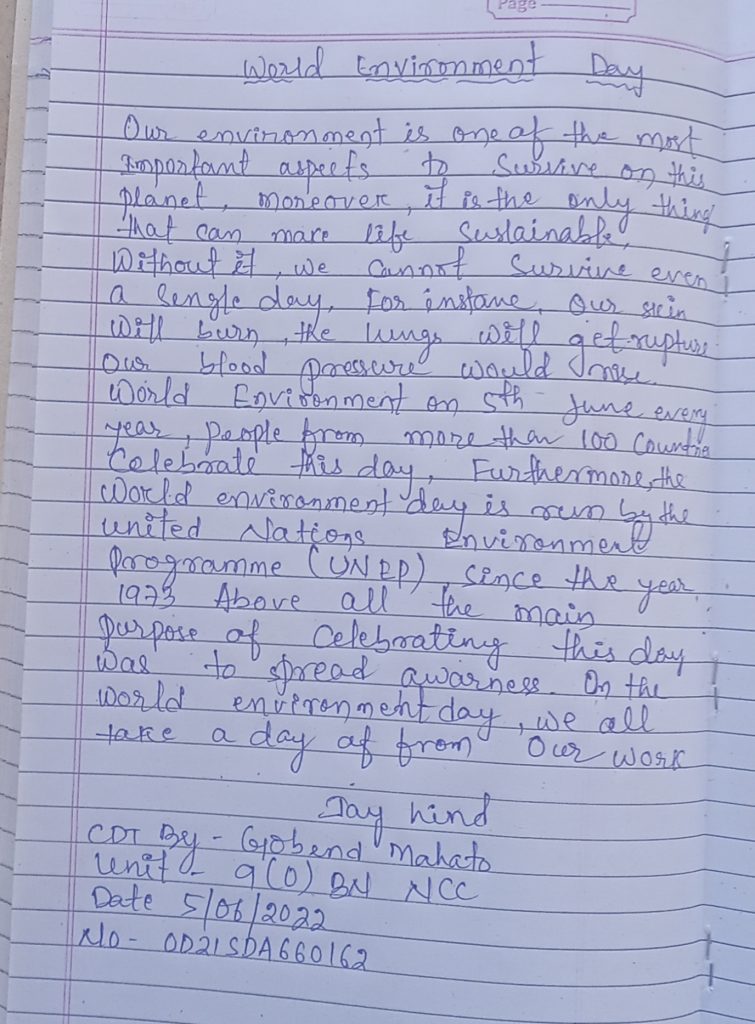 Page
World Environment Day
Our environment is one of the most
Important aspects to Survive on this
planet, moreover, it is the only thing
that can make life Sustainable,
Without it, we cannot Survive even
a Single day, For instane, Our skin
will burn, the lungs will get rupture
Our blood pressure would
World Environment on 5th June every
year, people from more than 100 Countrie
Celebrate this day, Furthermore, the
World environment day is run by the
United Nations Environment
programme (UNEP), Since the year
1973 Above all the main
purpose of Celebrating this day
was to spread awarness. On the
world environment day, we all
take a day of from Our work
Jay hind
CDT By - Gobend Mahato
Unit - 9(O) BN NCC
Date 5/06/2022
No - OD21SDA660162